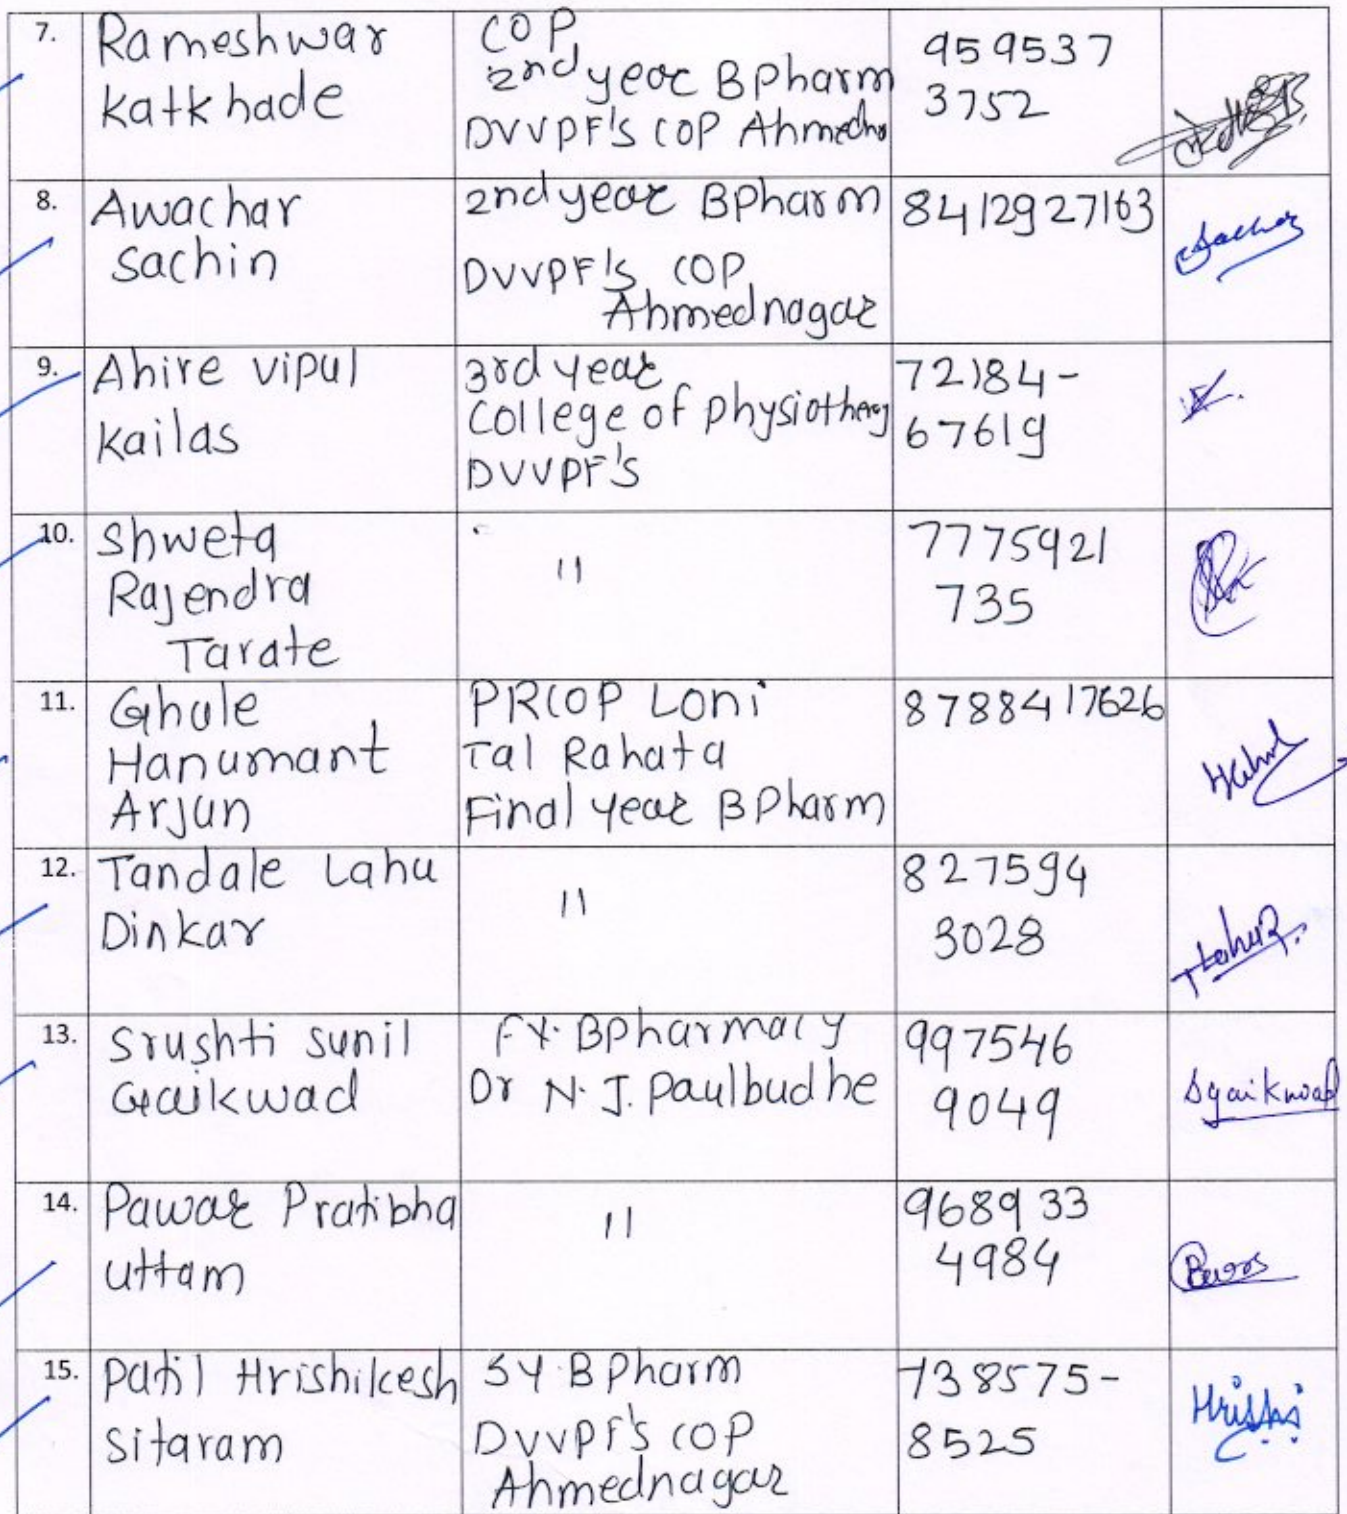 7. Rameshwar
Katkhade
COP
2nd year BPharm
DVVPF's COP Ahmedna
959537
3752
8. Awachar
Sachin
2nd year BPharm
DVVPF's COP
Ahmednagar
8412927163
Sachin
9. Ahire Vipul
Kailas
3rd year
College of physiotherapy
DVVPF's
72184-
67619
10. Shweta
Rajendra
Tarate
"
7775921
735
11. Ghule
Hanumant
Arjun
PRCOP Loni
Tal Rahata
Final year BPharm
8788417626
12. Tandale Lahu
Dinkar
"
827594
3028
13. Srushti Sunil
Gaikwad
F.Y. BPharmacy
Dr N. J. Paulbudhe
997546
9049
Sgaikwad
14. Pawar Pratibha
Uttam
"
968933
4984
15. Patil Hrishikesh
Sitaram
SY. B Pharm
DVVPF's COP
Ahmednagar
738575-
8525
Hrishi